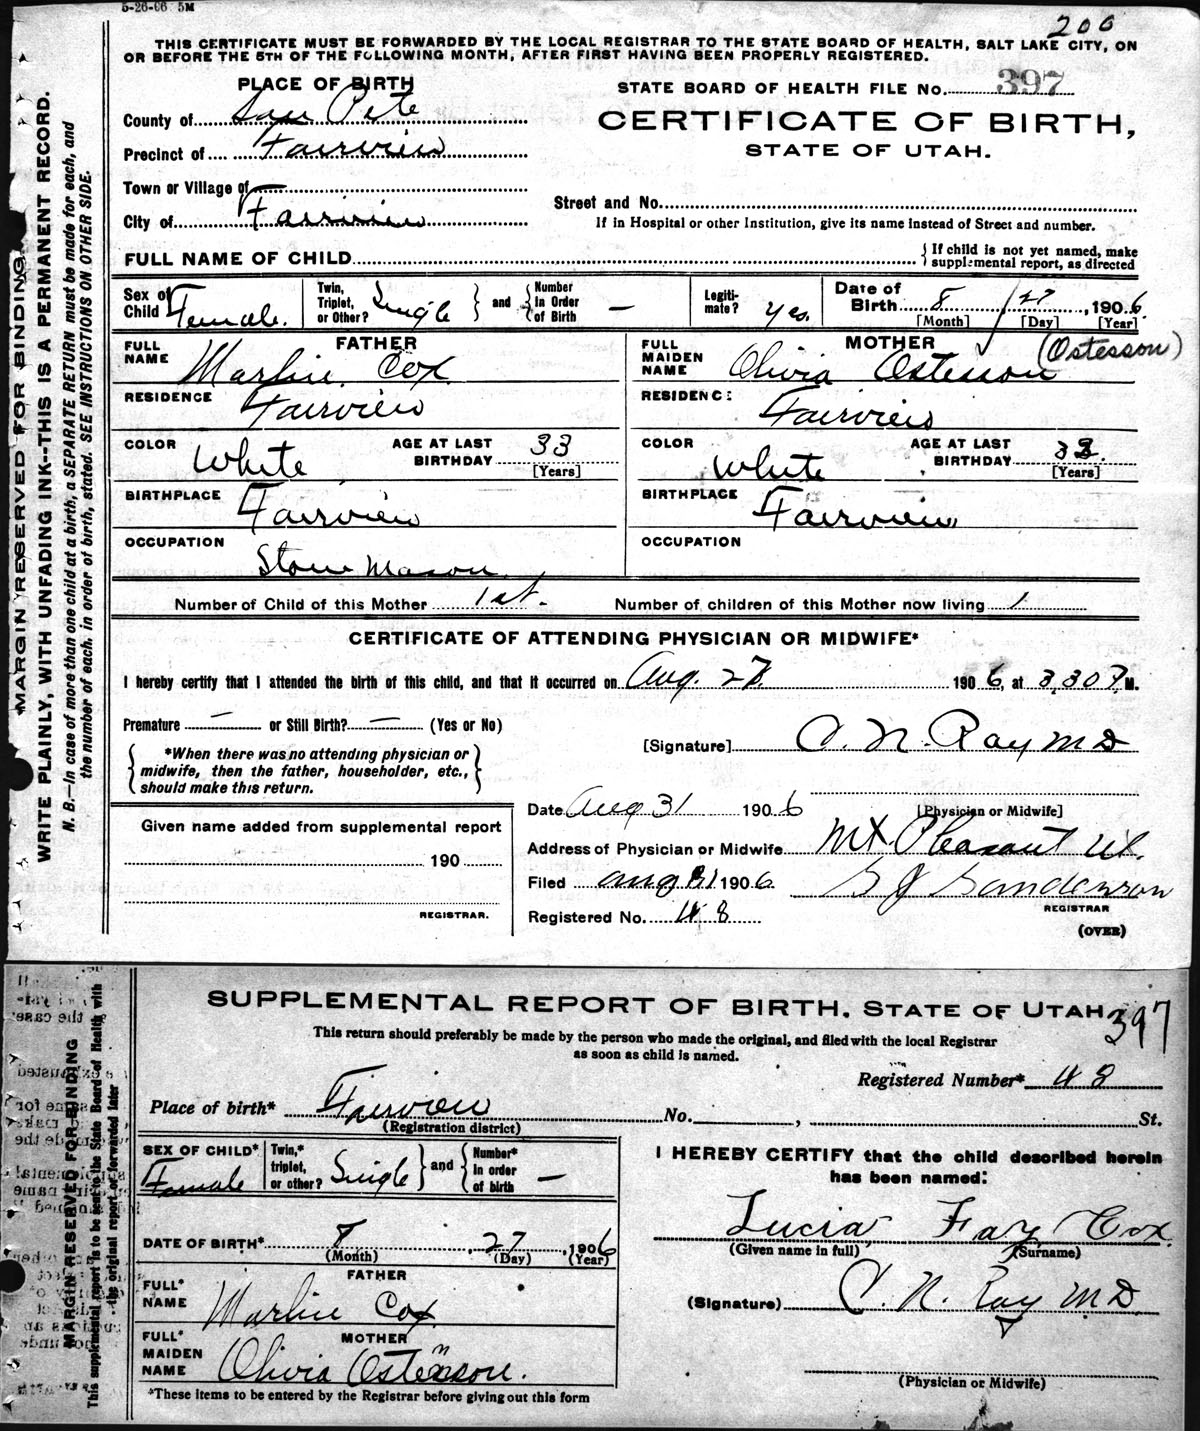 5-26-06 5M
200
THIS CERTIFICATE MUST BE FORWARDED BY THE LOCAL REGISTRAR TO THE STATE BOARD OF HEALTH, SALT LAKE CITY, ON
OR BEFORE THE 5TH OF THE FOLLOWING MONTH, AFTER FIRST HAVING BEEN PROPERLY REGISTERED.
PLACE OF BIRTH
County of San Pete
Precinct of Fairview
Town or Village of
City of Fairview
STATE BOARD OF HEALTH FILE No. 397
CERTIFICATE OF BIRTH,
STATE OF UTAH.
Street and No.
If in Hospital or other Institution, give its name instead of Street and number.
FULL NAME OF CHILD
If child is not yet named, make
supplemental report, as directed
Sex of Child Female.
Twin, Triplet, or Other? Single
and
Number in Order of Birth —
Legiti-mate? yes.
Date of Birth 8 27, 1906
[Month] [Day] [Year]
FATHER
FULL NAME Marlin Cox
RESIDENCE Fairview
COLOR White
AGE AT LAST BIRTHDAY 33
[Years]
BIRTHPLACE Fairview
OCCUPATION Stone Mason
MOTHER
FULL MAIDEN NAME Olivia Ostesson (Ostesson)
RESIDENCE Fairview
COLOR White
AGE AT LAST BIRTHDAY
[Years]
BIRTHPLACE Fairview
OCCUPATION
Number of Child of this Mother 1st.
Number of children of this Mother now living 1
CERTIFICATE OF ATTENDING PHYSICIAN OR MIDWIFE*
I hereby certify that I attended the birth of this child, and that it occurred on Aug. 27. 1906, at 3.30 P. M.
Premature — or Still Birth? — (Yes or No)
*When there was no attending physician or
midwife, then the father, householder, etc.,
should make this return.
[Signature] C. N. Ray MD
[Physician or Midwife]
Given name added from supplemental report
190
REGISTRAR.
Date Aug 31 1906
Address of Physician or Midwife Mt. Pleasant Ut.
Filed Aug 31 1906
Registered No. 48
REGISTRAR
(OVER)
MARGIN RESERVED FOR BINDING
WRITE PLAINLY, WITH UNFADING INK--THIS IS A PERMANENT RECORD.
N. B.—In case of more than one child at a birth, a SEPARATE RETURN must be made for each, and
the number of each, in order of birth, stated. SEE INSTRUCTIONS ON OTHER SIDE.
SUPPLEMENTAL REPORT OF BIRTH, STATE OF UTAH
397
This return should preferably be made by the person who made the original, and filed with the local Registrar
as soon as child is named.
Registered Number* 48
Place of birth* Fairview No. , St.
(Registration district)
SEX OF CHILD* Female
Twin,* triplet, or other? Single
and
Number* in order of birth —
DATE OF BIRTH* 8 27 1906
(Month) (Day) (Year)
FATHER
FULL* NAME Marlin Cox
MOTHER
FULL* MAIDEN NAME Olivia Ostenson.
*These items to be entered by the Registrar before giving out this form
I HEREBY CERTIFY that the child described herein
has been named:
Lucia Fay Cox
(Given name in full) (Surname)
(Signature) C. N. Ray MD
(Physician or Midwife)
MARGIN RESERVED FOR BINDING
This supplemental report is to be sent to the State Board of Health with
the original report or forwarded later